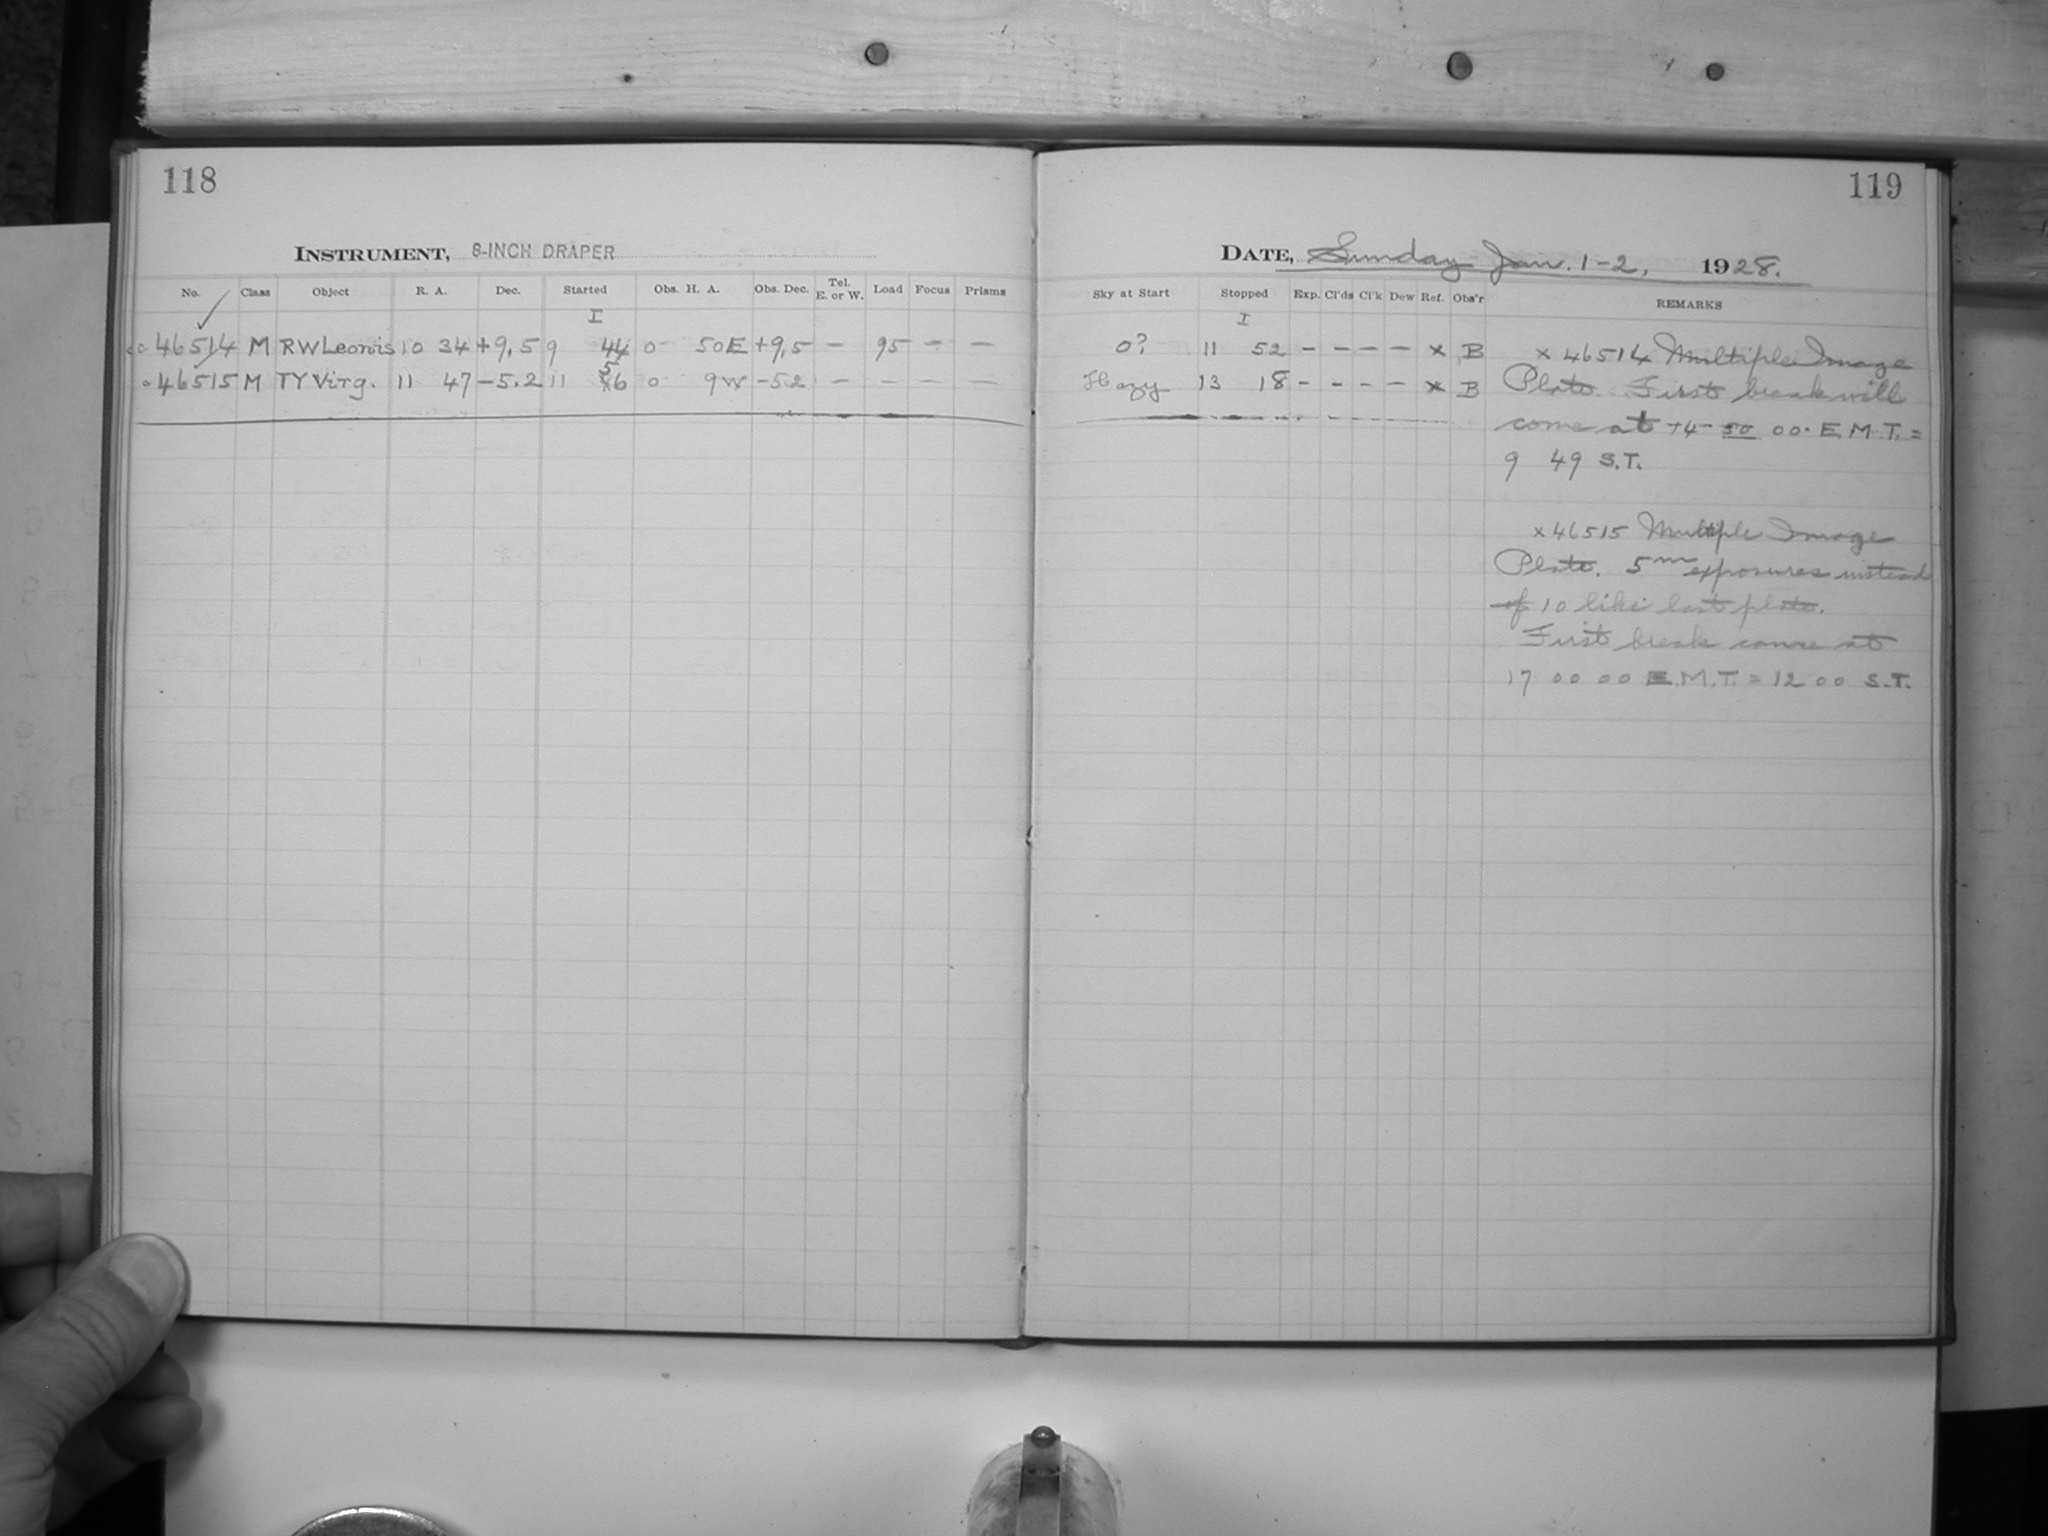 118
INSTRUMENT, 8-INCH DRAPER
No. Class Object R. A. Dec. Started Obs. H. A. Obs. Dec. Tel. E. or W. Load Focus Prisms
I
46514 M RW Leonis 10 34 +9,5 9 44 0 50E +9,5 — 95 — —
46515 M TY Virg. 11 47 -5.2 11 56 0 9W -5.2 — — — —
119
DATE, Sunday Jan. 1-2, 1928.
Sky at Start Stopped Exp. Cl'ds Cl'k Dew Ref. Obs'r REMARKS
I
0? 11 52 — — — — x B
Hazy 13 18 — — — — x B
x 46514 Multiple Image
Plate. First break will
come at 14 50 00. E.M.T. =
9 49 S.T.
x 46515 Multiple Image
Plate. 5m exposures instead
of 10 like last plate.
First break come at
17 00 00 E.M.T. = 12 00 S.T.